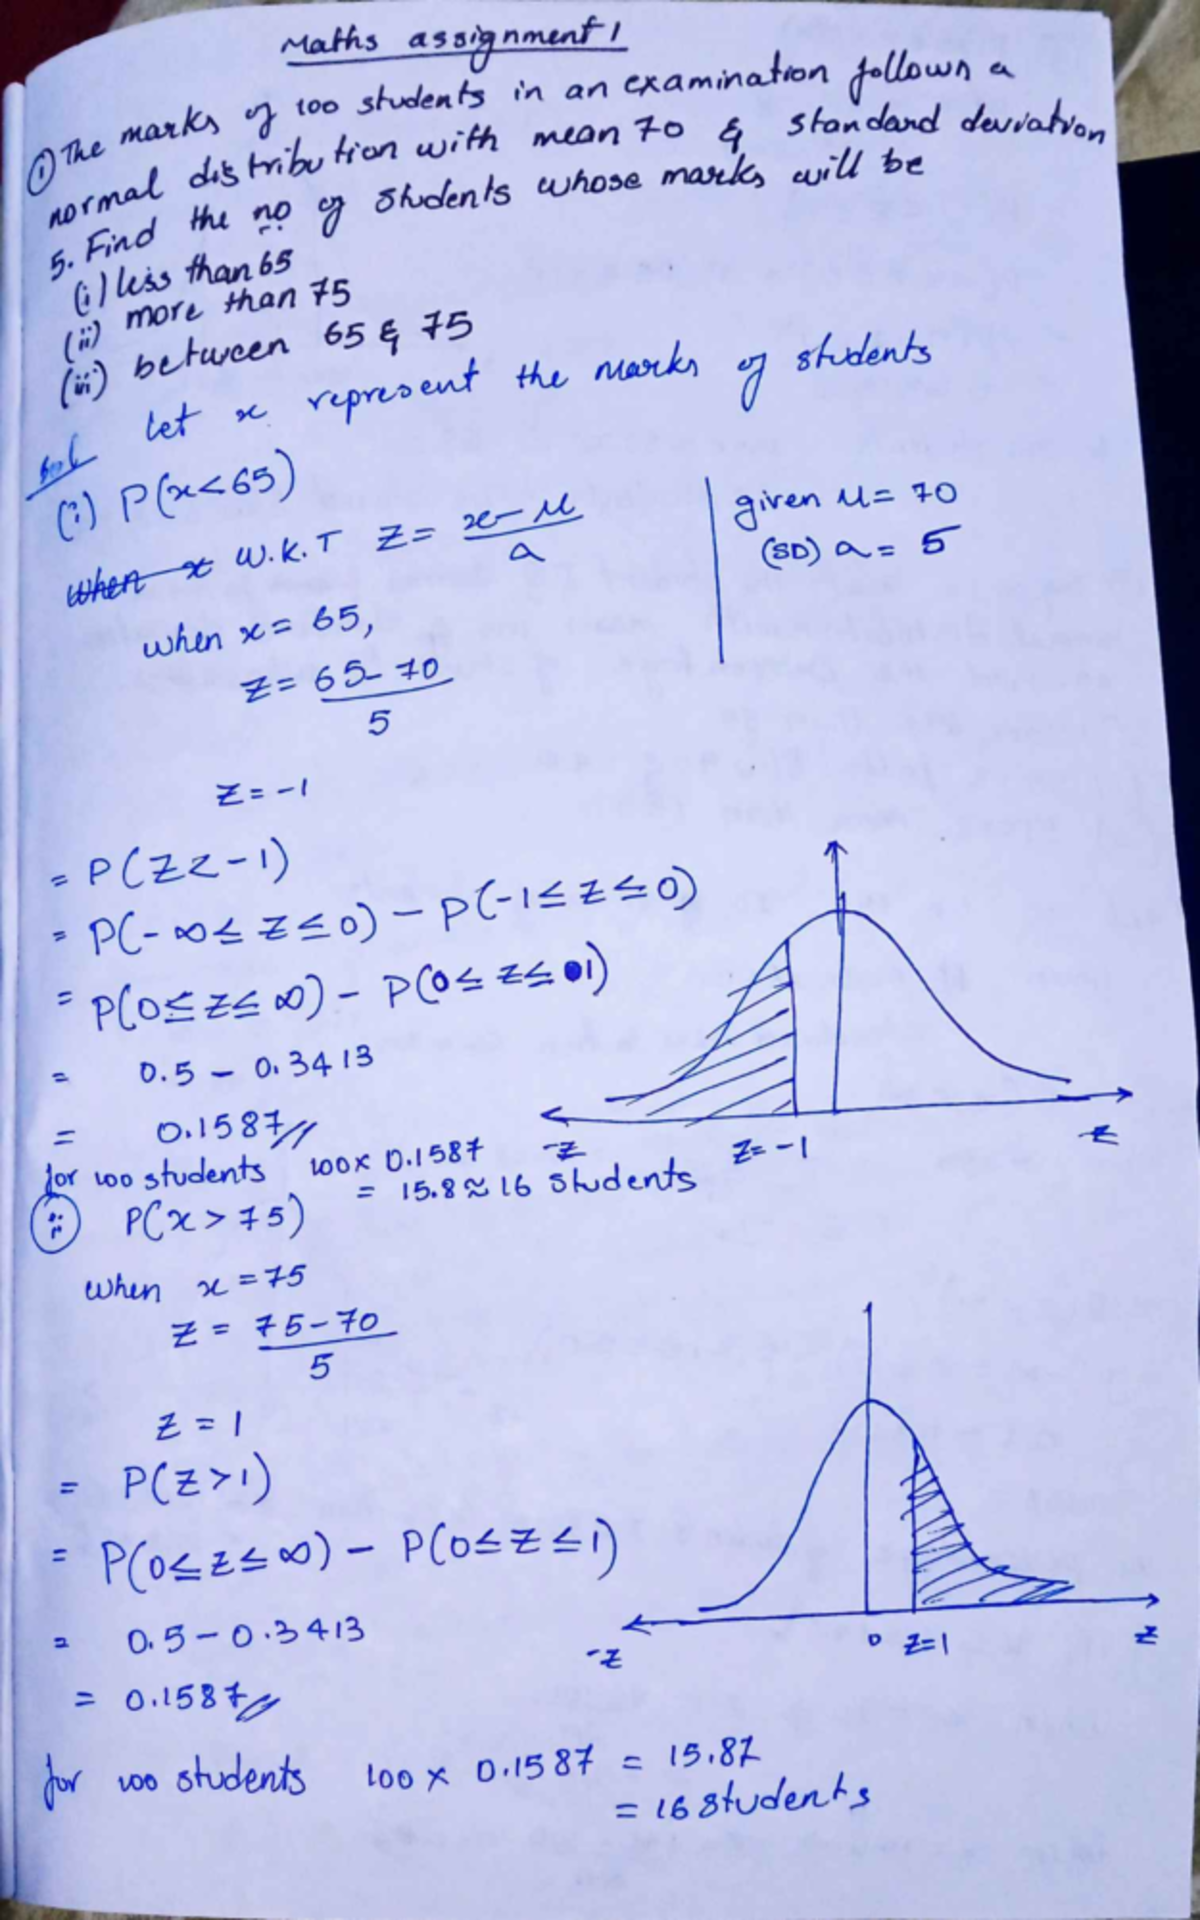 Maths assignment 1
① The marks of 100 students in an examination follows a
normal distribution with mean 70 & standard deviation
5. Find the no of students whose marks will be
(i) less than 65
(ii) more than 75
(iii) between 65 & 75
Sol Let x represent the marks of students
(i) P(x<65)
given μ = 70
(SD) a = 5
when x W.K.T Z = x-μ / a
when x = 65,
Z = 65-70 / 5
Z = -1
= P(Z<-1)
= P(-∞ ≤ Z ≤ 0) - P(-1 ≤ Z ≤ 0)
= P(0 ≤ Z ≤ ∞) - P(0 ≤ Z ≤ 1)
= 0.5 - 0.3413
= 0.1587//
-Z Z=-1 Z
for 100 students 100 x 0.1587
= 15.8 ≈ 16 students
ii P(x > 75)
when x = 75
Z = 75-70 / 5
Z = 1
= P(Z>1)
= P(0 ≤ Z ≤ ∞) - P(0 ≤ Z ≤ 1)
= 0.5 - 0.3413
-Z 0 Z=1 Z
= 0.1587//
for 100 students 100 x 0.1587 = 15.87
= 16 students